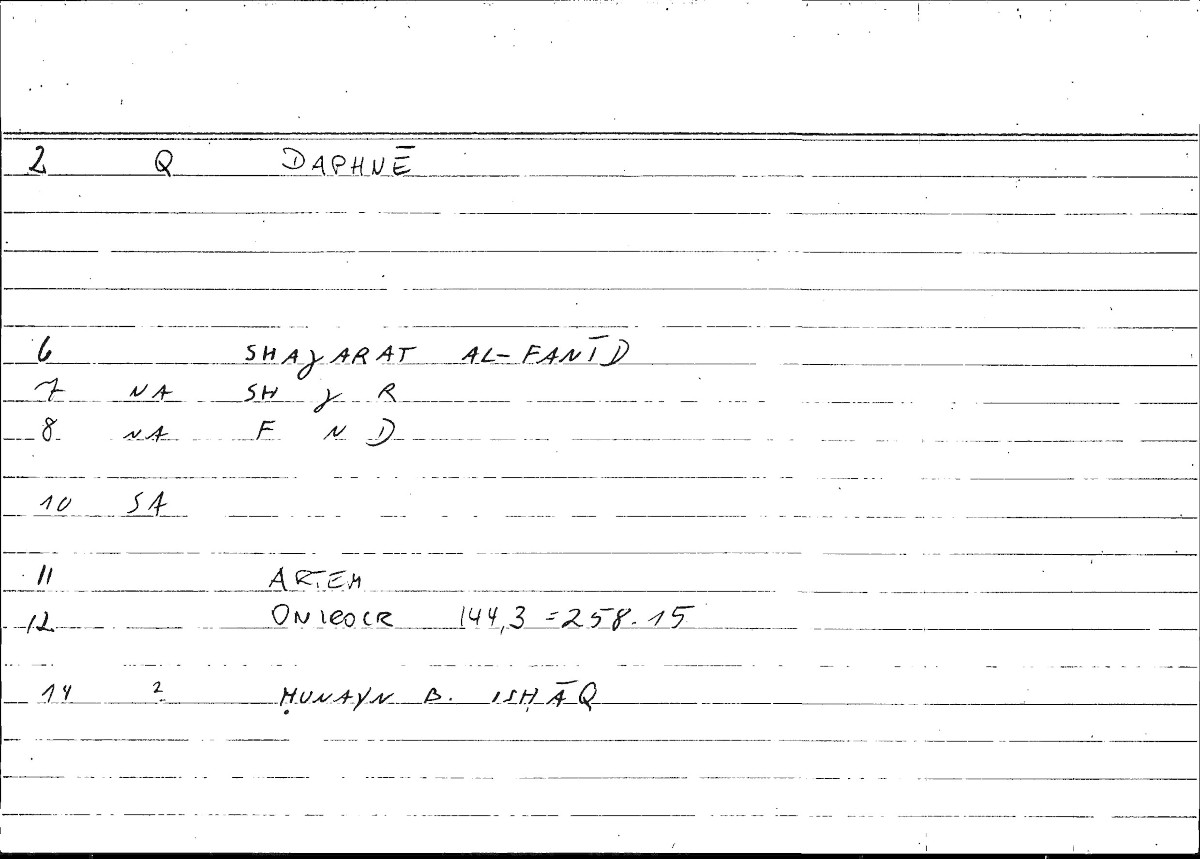 2 Q DAPHNĒ
6 SHAJARAT AL-FANĪD
7 NA SH J R
8 NA F N D
10 SA
11 ARTEM
12 ONIROCR 144,3 = 258.15
14 2 ḤUNAYN B. ISḤĀQ